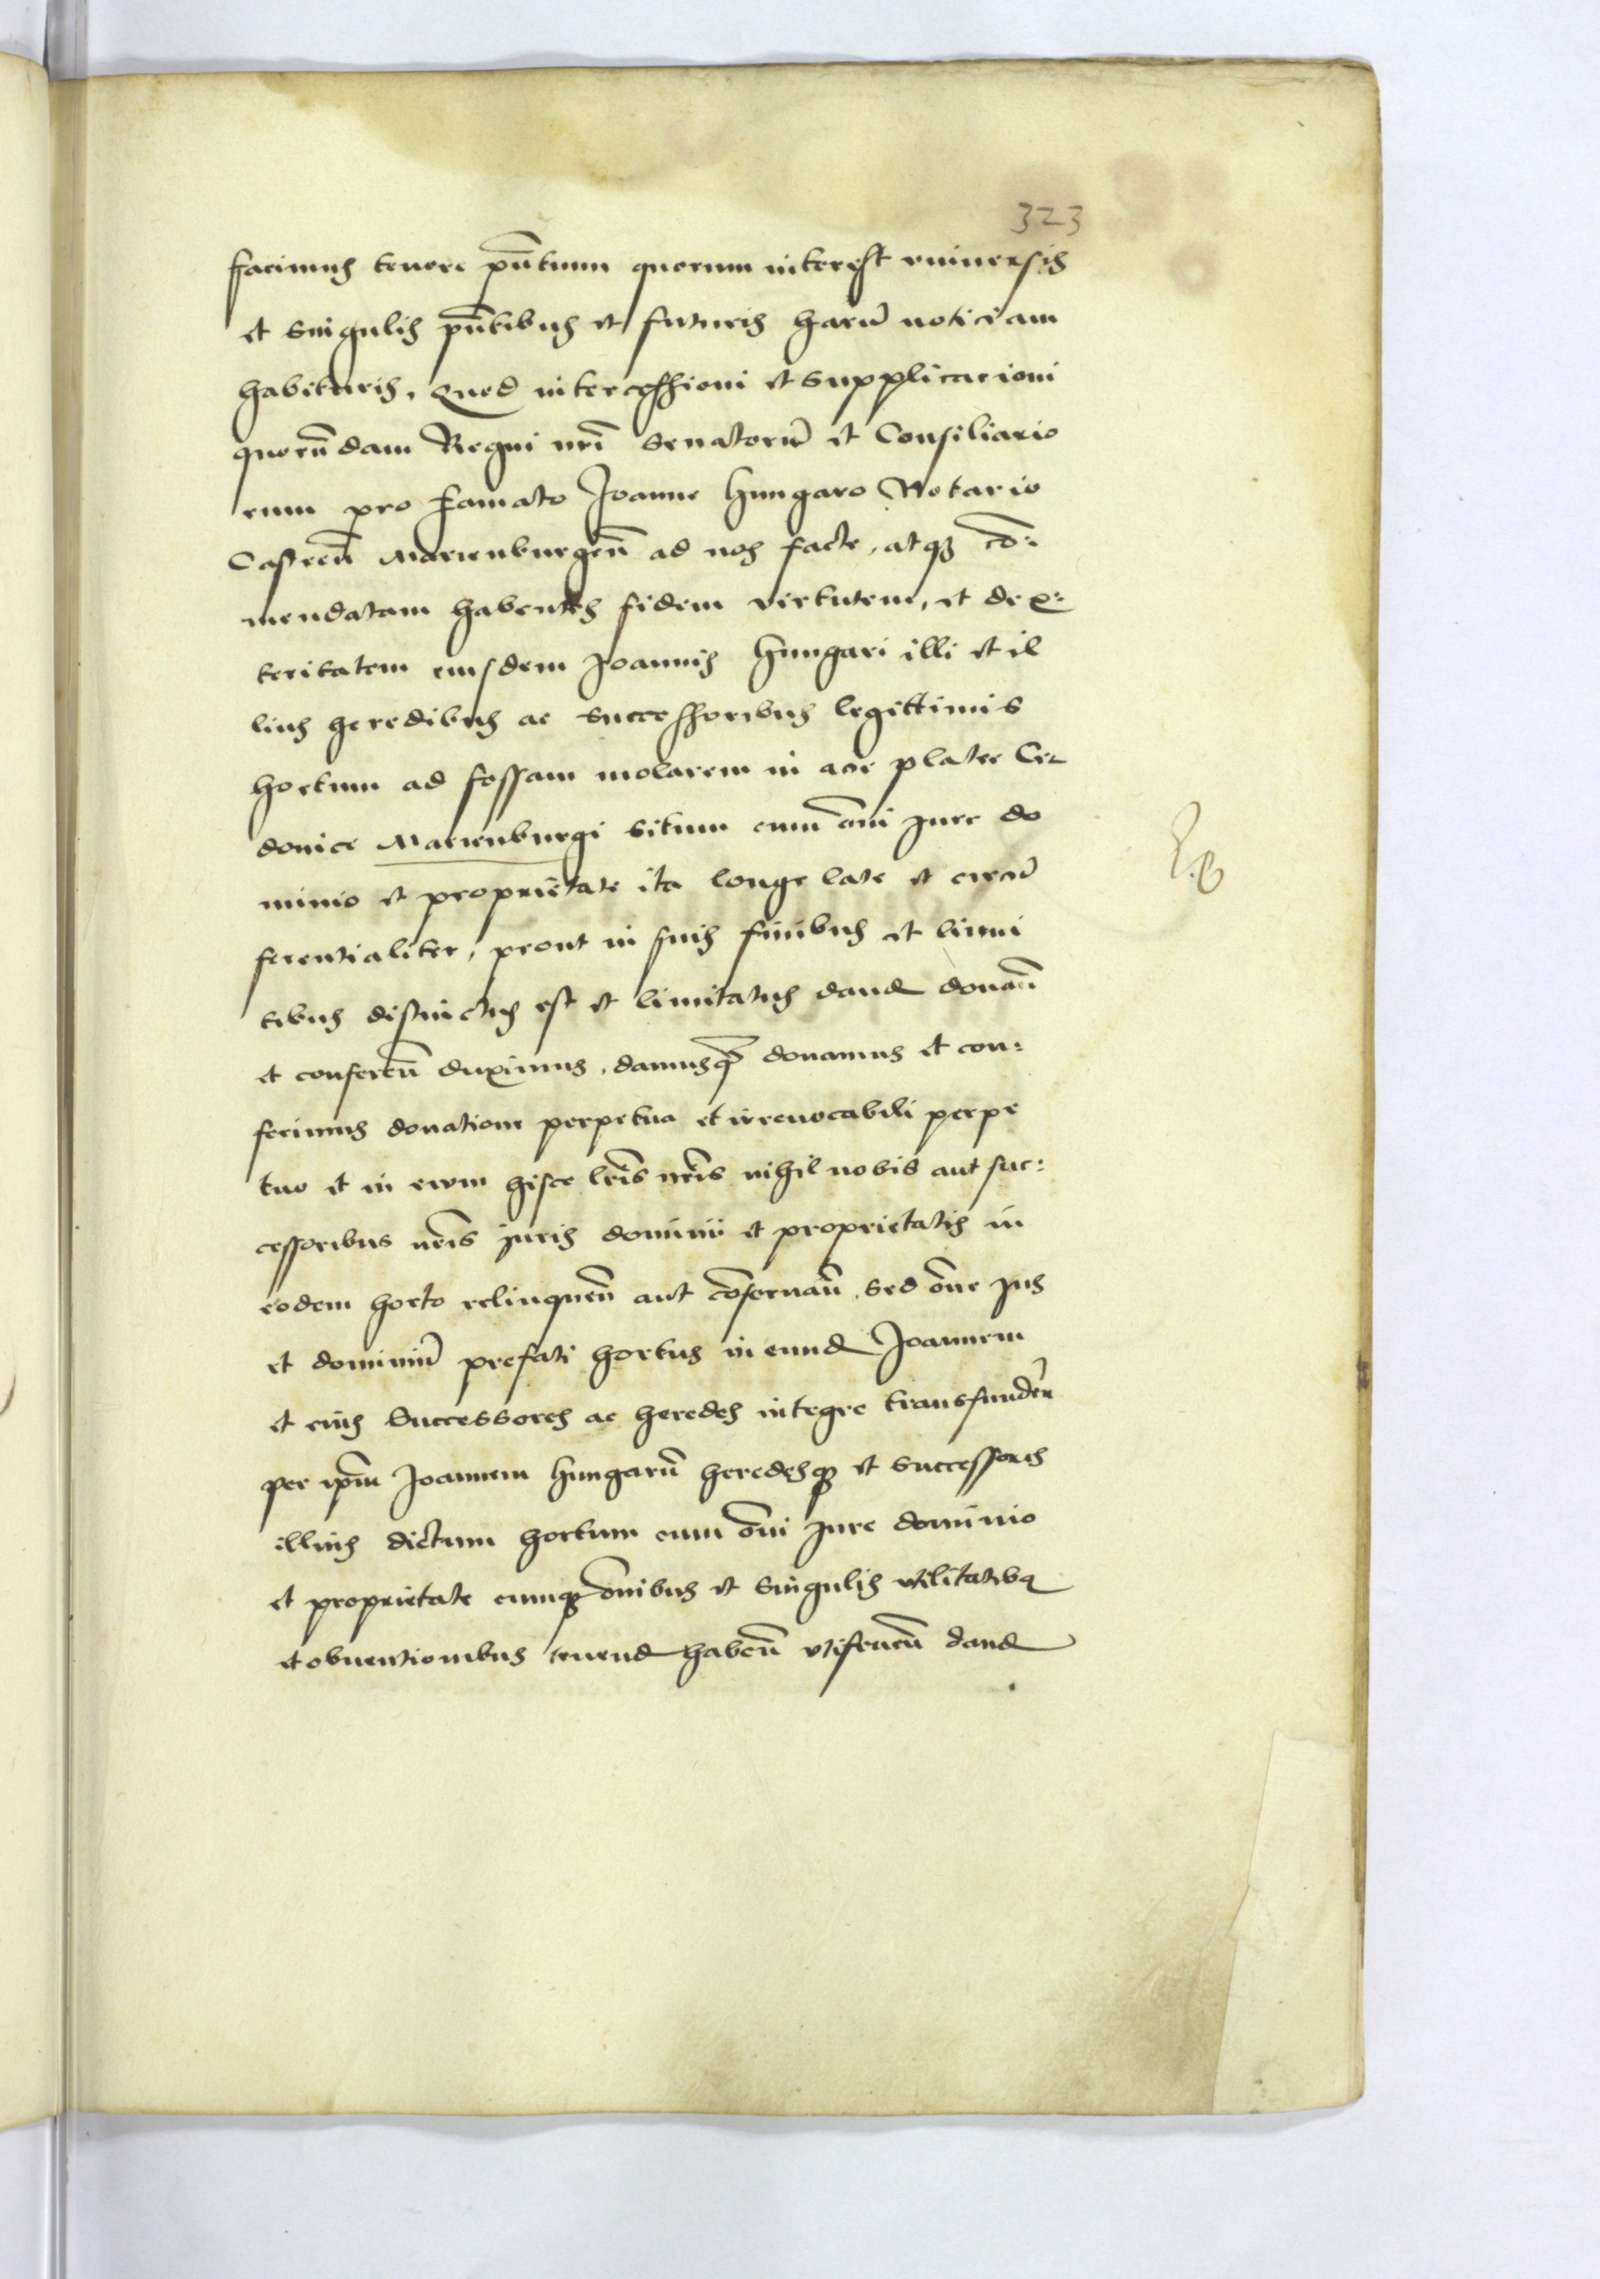 323
facimus tenore pn̄tium quorum interest vniuersis
et singulis pn̄tibus et futuris harū noticiam
habituris. Quod intercessioni et supplicacioni
quorūdam Regni nr̄i senatorū et Consiliario
rum pro famato Joanne Hungaro Notario
Castren̄ Marienburgen̄ ad nos facte, atqꝫ cō:
mendatam habentes fidem virtutem, et dex:
teritatem eiusdem Joannis Hungari illi et il
lius heredibus ac successoribus legittimis
hortum ad fossam molarem in acie platee Cer
donice Marienburgi situm cum om̄i iure do
minio et proprietate ita longe late et circū
ferentialiter, prout in suis finibus et limi
tibus distinctus est et limitatus dand donan̄
et conferen̄ duximus, damusqꝫ donamus et con:
ferimus donatione perpetua et irreuocabili perpe
tuo et in ewm hisce lr̄is nr̄is nihil nobis aut suc:
cessoribus nr̄is juris dominii et proprietatis in
eodem horto relinquen̄ aut cōseruan̄, sed om̄e jus
et dominiū prefati hortus in eund Joannem
et eius successores ac heredes integre transfunden̄
per ip̄m Joannem Hungarū heredesqꝫ et successores
illius dictum hortum cum om̄i jure dominio
et proprietate cumqꝫ om̄ibus et singulis vtilitatibꝫ
et obuentionibus tenend haben̄ vtifruen̄ dand